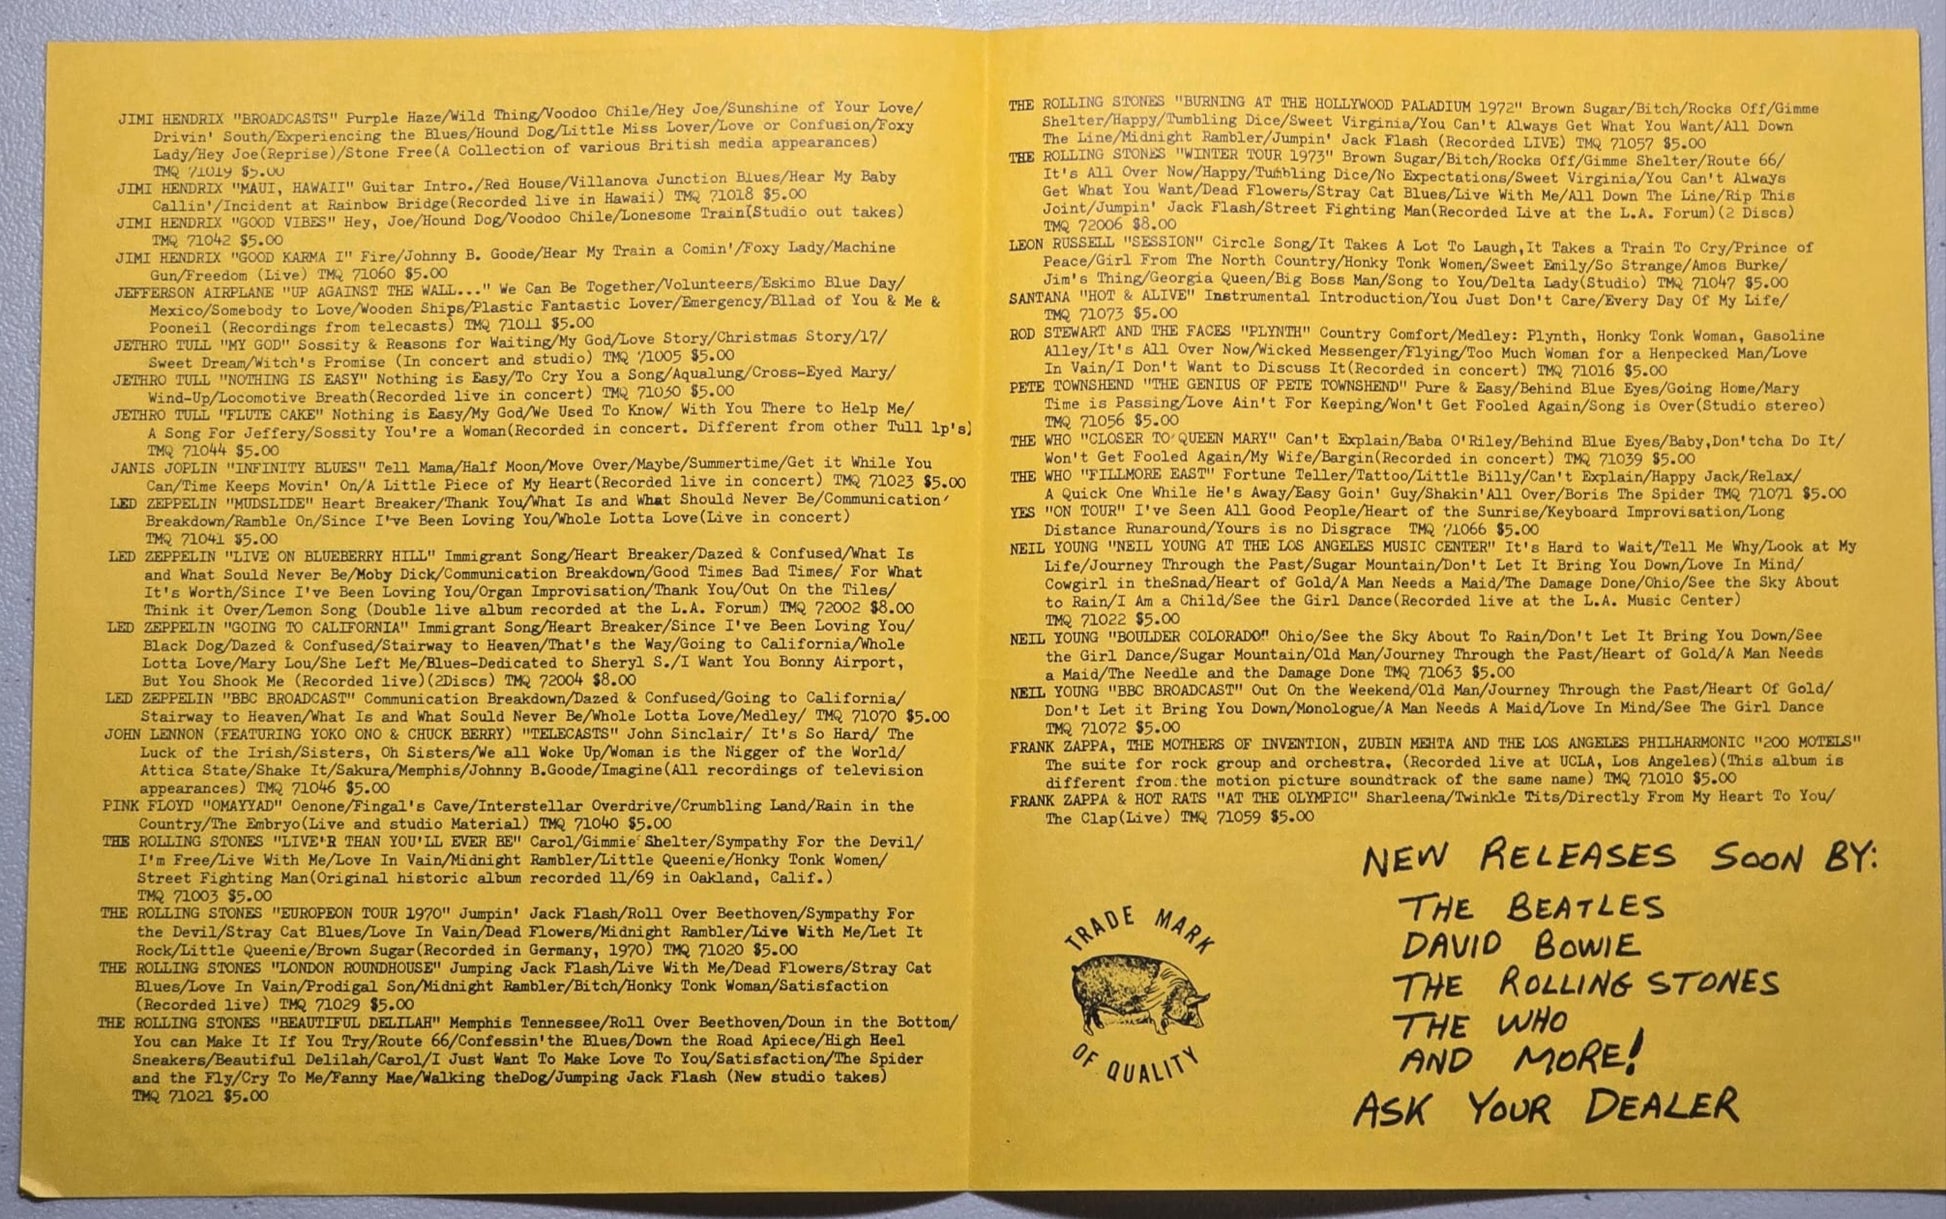 JIMI HENDRIX "BROADCASTS" Purple Haze/Wild Thing/Voodoo Chile/Hey Joe/Sunshine of Your Love/
Drivin' South/Experiencing the Blues/Hound Dog/Little Miss Lover/Love or Confusion/Foxy
Lady/Hey Joe(Reprise)/Stone Free(A Collection of various British media appearances)
TMQ 71019 $5.00
JIMI HENDRIX "MAUI, HAWAII" Guitar Intro./Red House/Villanova Junction Blues/Hear My Baby
Callin'/Incident at Rainbow Bridge(Recorded live in Hawaii) TMQ 71018 $5.00
JIMI HENDRIX "GOOD VIBES" Hey, Joe/Hound Dog/Voodoo Chile/Lonesome Train(Studio out takes)
TMQ 71042 $5.00
JIMI HENDRIX "GOOD KARMA I" Fire/Johnny B. Goode/Hear My Train a Comin'/Foxy Lady/Machine
Gun/Freedom (Live) TMQ 71060 $5.00
JEFFERSON AIRPLANE "UP AGAINST THE WALL..." We Can Be Together/Volunteers/Eskimo Blue Day/
Mexico/Somebody to Love/Wooden Ships/Plastic Fantastic Lover/Emergency/Bllad of You & Me &
Pooneil (Recordings from telecasts) TMQ 71011 $5.00
JETHRO TULL "MY GOD" Sossity & Reasons for Waiting/My God/Love Story/Christmas Story/17/
Sweet Dream/Witch's Promise (In concert and studio) TMQ 71005 $5.00
JETHRO TULL "NOTHING IS EASY" Nothing is Easy/To Cry You a Song/Aqualung/Cross-Eyed Mary/
Wind-Up/Locomotive Breath(Recorded live in concert) TMQ 71030 $5.00
JETHRO TULL "FLUTE CAKE" Nothing is Easy/My God/We Used To Know/ With You There to Help Me/
A Song For Jeffery/Sossity You're a Woman(Recorded in concert. Different from other Tull lp's)
TMQ 71044 $5.00
JANIS JOPLIN "INFINITY BLUES" Tell Mama/Half Moon/Move Over/Maybe/Summertime/Get it While You
Can/Time Keeps Movin' On/A Little Piece of My Heart(Recorded live in concert) TMQ 71023 $5.00
LED ZEPPELIN "MUDSLIDE" Heart Breaker/Thank You/What Is and What Should Never Be/Communication
Breakdown/Ramble On/Since I've Been Loving You/Whole Lotta Love(Live in concert)
TMQ 71041 $5.00
LED ZEPPELIN "LIVE ON BLUEBERRY HILL" Immigrant Song/Heart Breaker/Dazed & Confused/What Is
and What Sould Never Be/Moby Dick/Communication Breakdown/Good Times Bad Times/ For What
It's Worth/Since I've Been Loving You/Organ Improvisation/Thank You/Out On the Tiles/
Think it Over/Lemon Song (Double live album recorded at the L.A. Forum) TMQ 72002 $8.00
LED ZEPPELIN "GOING TO CALIFORNIA" Immigrant Song/Heart Breaker/Since I've Been Loving You/
Black Dog/Dazed & Confused/Stairway to Heaven/That's the Way/Going to California/Whole
Lotta Love/Mary Lou/She Left Me/Blues-Dedicated to Sheryl S./I Want You Bonny Airport,
But You Shook Me (Recorded live)(2Discs) TMQ 72004 $8.00
LED ZEPPELIN "BBC BROADCAST" Communication Breakdown/Dazed & Confused/Going to California/
Stairway to Heaven/What Is and What Sould Never Be/Whole Lotta Love/Medley/ TMQ 71070 $5.00
JOHN LENNON (FEATURING YOKO ONO & CHUCK BERRY) "TELECASTS" John Sinclair/ It's So Hard/ The
Luck of the Irish/Sisters, Oh Sisters/We all Woke Up/Woman is the Nigger of the World/
Attica State/Shake It/Sakura/Memphis/Johnny B.Goode/Imagine(All recordings of television
appearances) TMQ 71046 $5.00
PINK FLOYD "OMAYYAD" Oenone/Fingal's Cave/Interstellar Overdrive/Crumbling Land/Rain in the
Country/The Embryo(Live and studio Material) TMQ 71040 $5.00
THE ROLLING STONES "LIVE'R THAN YOU'LL EVER BE" Carol/Gimmie Shelter/Sympathy For the Devil/
I'm Free/Live With Me/Love In Vain/Midnight Rambler/Little Queenie/Honky Tonk Women/
Street Fighting Man(Original historic album recorded 11/69 in Oakland, Calif.)
TMQ 71003 $5.00
THE ROLLING STONES "EUROPEON TOUR 1970" Jumpin' Jack Flash/Roll Over Beethoven/Sympathy For
the Devil/Stray Cat Blues/Love In Vain/Dead Flowers/Midnight Rambler/Live With Me/Let It
Rock/Little Queenie/Brown Sugar(Recorded in Germany, 1970) TMQ 71020 $5.00
THE ROLLING STONES "LONDON ROUNDHOUSE" Jumping Jack Flash/Live With Me/Dead Flowers/Stray Cat
Blues/Love In Vain/Prodigal Son/Midnight Rambler/Bitch/Honky Tonk Woman/Satisfaction
(Recorded live) TMQ 71029 $5.00
THE ROLLING STONES "BEAUTIFUL DELILAH" Memphis Tennessee/Roll Over Beethoven/Doun in the Bottom/
You can Make It If You Try/Route 66/Confessin'the Blues/Down the Road Apiece/High Heel
Sneakers/Beautiful Delilah/Carol/I Just Want To Make Love To You/Satisfaction/The Spider
and the Fly/Cry To Me/Fanny Mae/Walking theDog/Jumping Jack Flash (New studio takes)
TMQ 71021 $5.00
THE ROLLING STONES "BURNING AT THE HOLLYWOOD PALADIUM 1972" Brown Sugar/Bitch/Rocks Off/Gimme
Shelter/Happy/Tumbling Dice/Sweet Virginia/You Can't Always Get What You Want/All Down
The Line/Midnight Rambler/Jumpin' Jack Flash (Recorded LIVE) TMQ 71057 $5.00
THE ROLLING STONES "WINTER TOUR 1973" Brown Sugar/Bitch/Rocks Off/Gimme Shelter/Route 66/
It's All Over Now/Happy/Tumbling Dice/No Expectations/Sweet Virginia/You Can't Always
Get What You Want/Dead Flowers/Stray Cat Blues/Live With Me/All Down The Line/Rip This
Joint/Jumpin' Jack Flash/Street Fighting Man(Recorded Live at the L.A. Forum)(2 Discs)
TMQ 72006 $8.00
LEON RUSSELL "SESSION" Circle Song/It Takes A Lot To Laugh,It Takes a Train To Cry/Prince of
Peace/Girl From The North Country/Honky Tonk Women/Sweet Emily/So Strange/Amos Burke/
Jim's Thing/Georgia Queen/Big Boss Man/Song to You/Delta Lady(Studio) TMQ 71047 $5.00
SANTANA "HOT & ALIVE" Instrumental Introduction/You Just Don't Care/Every Day Of My Life/
TMQ 71073 $5.00
ROD STEWART AND THE FACES "PLYNTH" Country Comfort/Medley: Plynth, Honky Tonk Woman, Gasoline
Alley/It's All Over Now/Wicked Messenger/Flying/Too Much Woman for a Henpecked Man/Love
In Vain/I Don't Want to Discuss It(Recorded in concert) TMQ 71016 $5.00
PETE TOWNSHEND "THE GENIUS OF PETE TOWNSHEND" Pure & Easy/Behind Blue Eyes/Going Home/Mary
Time is Passing/Love Ain't For Keeping/Won't Get Fooled Again/Song is Over(Studio stereo)
TMQ 71056 $5.00
THE WHO "CLOSER TO QUEEN MARY" Can't Explain/Baba O'Riley/Behind Blue Eyes/Baby,Don'tcha Do It/
Won't Get Fooled Again/My Wife/Bargin(Recorded in concert) TMQ 71039 $5.00
THE WHO "FILLMORE EAST" Fortune Teller/Tattoo/Little Billy/Can't Explain/Happy Jack/Relax/
A Quick One While He's Away/Easy Goin' Guy/Shakin'All Over/Boris The Spider TMQ 71071 $5.00
YES "ON TOUR" I've Seen All Good People/Heart of the Sunrise/Keyboard Improvisation/Long
Distance Runaround/Yours is no Disgrace TMQ 71066 $5.00
NEIL YOUNG "NEIL YOUNG AT THE LOS ANGELES MUSIC CENTER" It's Hard to Wait/Tell Me Why/Look at My
Life/Journey Through the Past/Sugar Mountain/Don't Let It Bring You Down/Love In Mind/
Cowgirl in theSnad/Heart of Gold/A Man Needs a Maid/The Damage Done/Ohio/See the Sky About
to Rain/I Am a Child/See the Girl Dance(Recorded live at the L.A. Music Center)
TMQ 71022 $5.00
NEIL YOUNG "BOULDER COLORADO" Ohio/See the Sky About To Rain/Don't Let It Bring You Down/See
the Girl Dance/Sugar Mountain/Old Man/Journey Through the Past/Heart of Gold/A Man Needs
a Maid/The Needle and the Damage Done TMQ 71063 $5.00
NEIL YOUNG "BBC BROADCAST" Out On the Weekend/Old Man/Journey Through the Past/Heart Of Gold/
Don't Let it Bring You Down/Monologue/A Man Needs A Maid/Love In Mind/See The Girl Dance
TMQ 71072 $5.00
FRANK ZAPPA, THE MOTHERS OF INVENTION, ZUBIN MEHTA AND THE LOS ANGELES PHILHARMONIC "200 MOTELS"
The suite for rock group and orchestra. (Recorded live at UCLA, Los Angeles)(This album is
different from the motion picture soundtrack of the same name) TMQ 71010 $5.00
FRANK ZAPPA & HOT RATS "AT THE OLYMPIC" Sharleena/Twinkle Tits/Directly From My Heart To You/
The Clap(Live) TMQ 71059 $5.00
NEW RELEASES SOON BY:
THE BEATLES
DAVID BOWIE
THE ROLLING STONES
THE WHO
AND MORE!
ASK YOUR DEALER
TRADE MARK
OF QUALITY